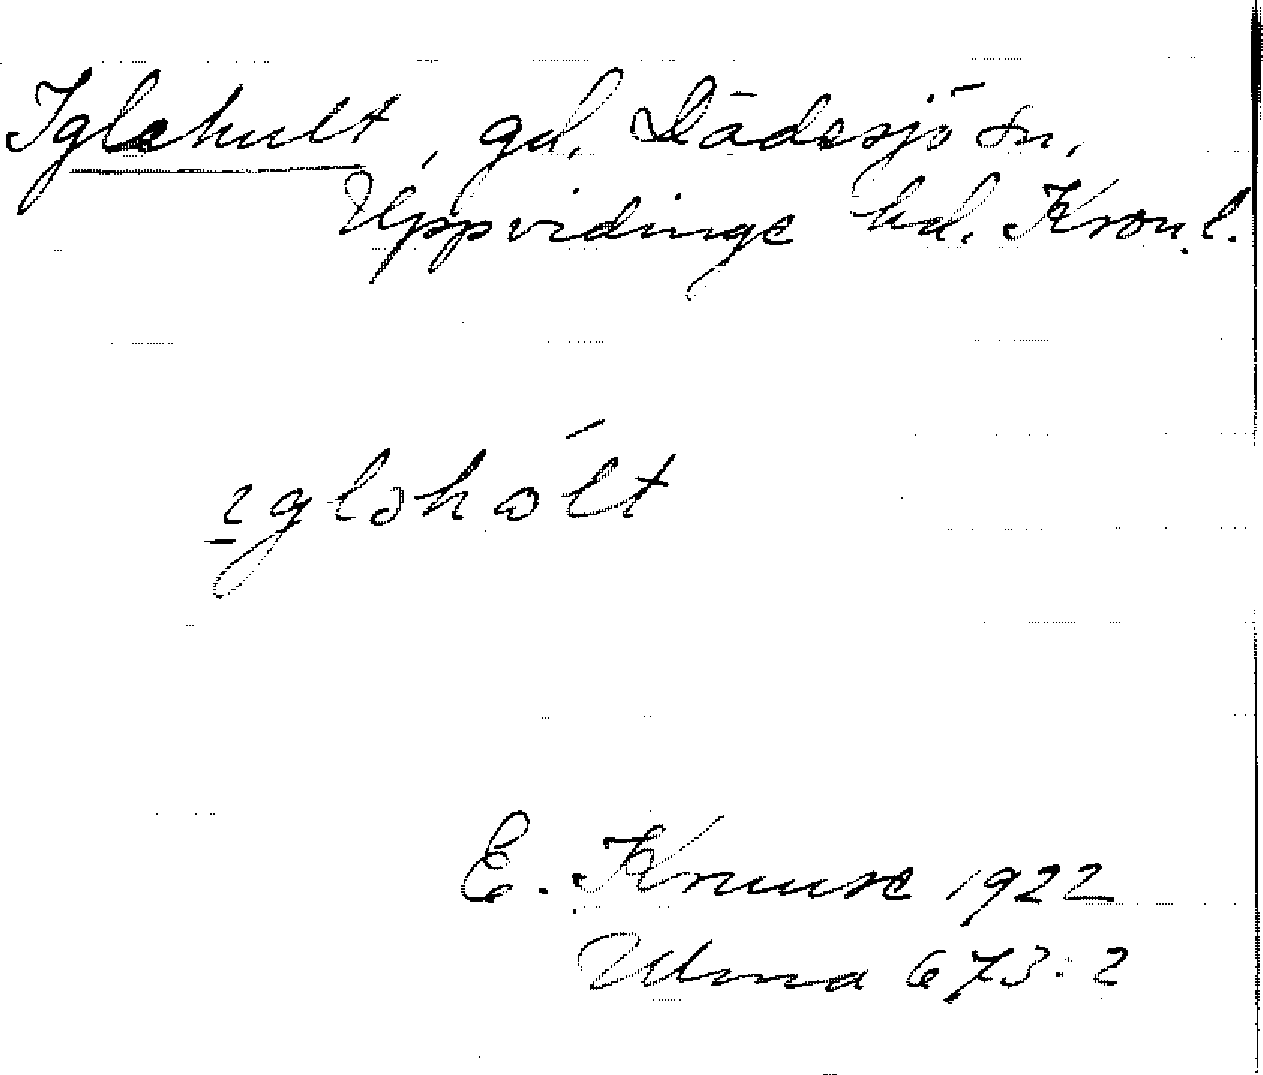 Iglehult, gd. Dädesjö sn,
Uppvidinge hd. Kron. l.
ıgləhəlt
E. Kruuse 1922
Ulma 673:2